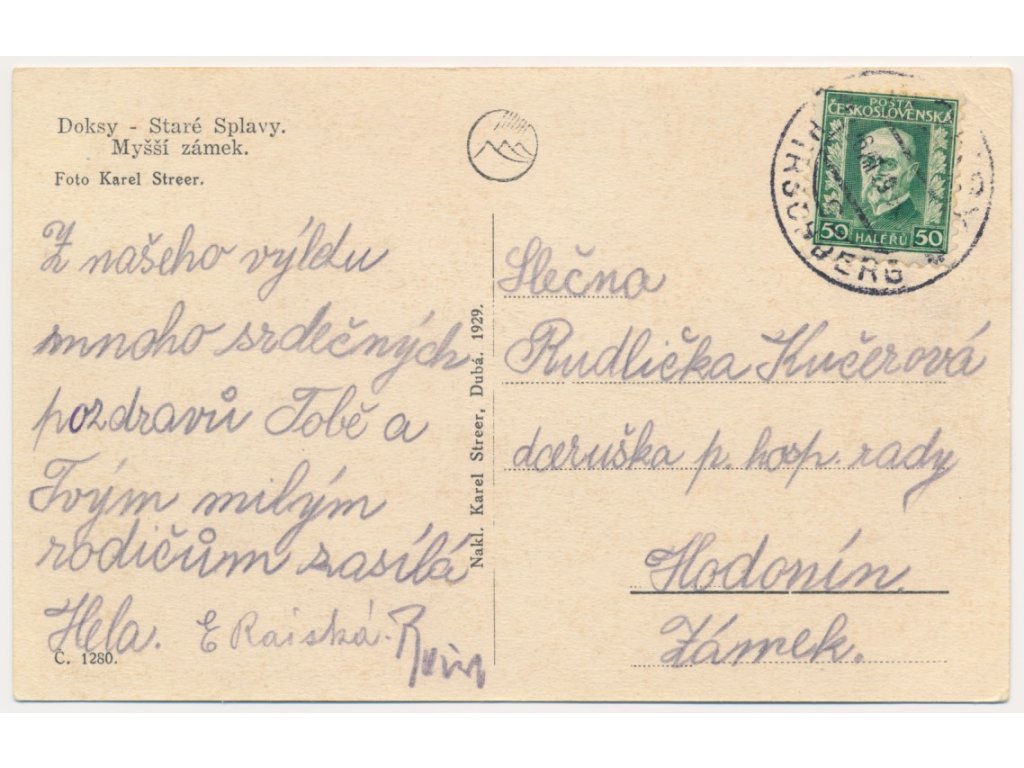 Doksy - Staré Splavy.
Myšší zámek.
Foto Karel Streer.
Z našeho výldu
mnoho srdečných
pozdravů Tobě a
Tvým milým
rodičům zasílá
Hela. E Raiská.
Č. 1280.
Nakl. Karel Streer, Dubá. 1929.
POŠTA
ČESKOSLOVENSKÁ
50 HALÉŘŮ 50
HIRSCHBERG
Slečna
Rudlička Kučerová
dceruška p. hosp. rady
Hodonín.
Zámek.